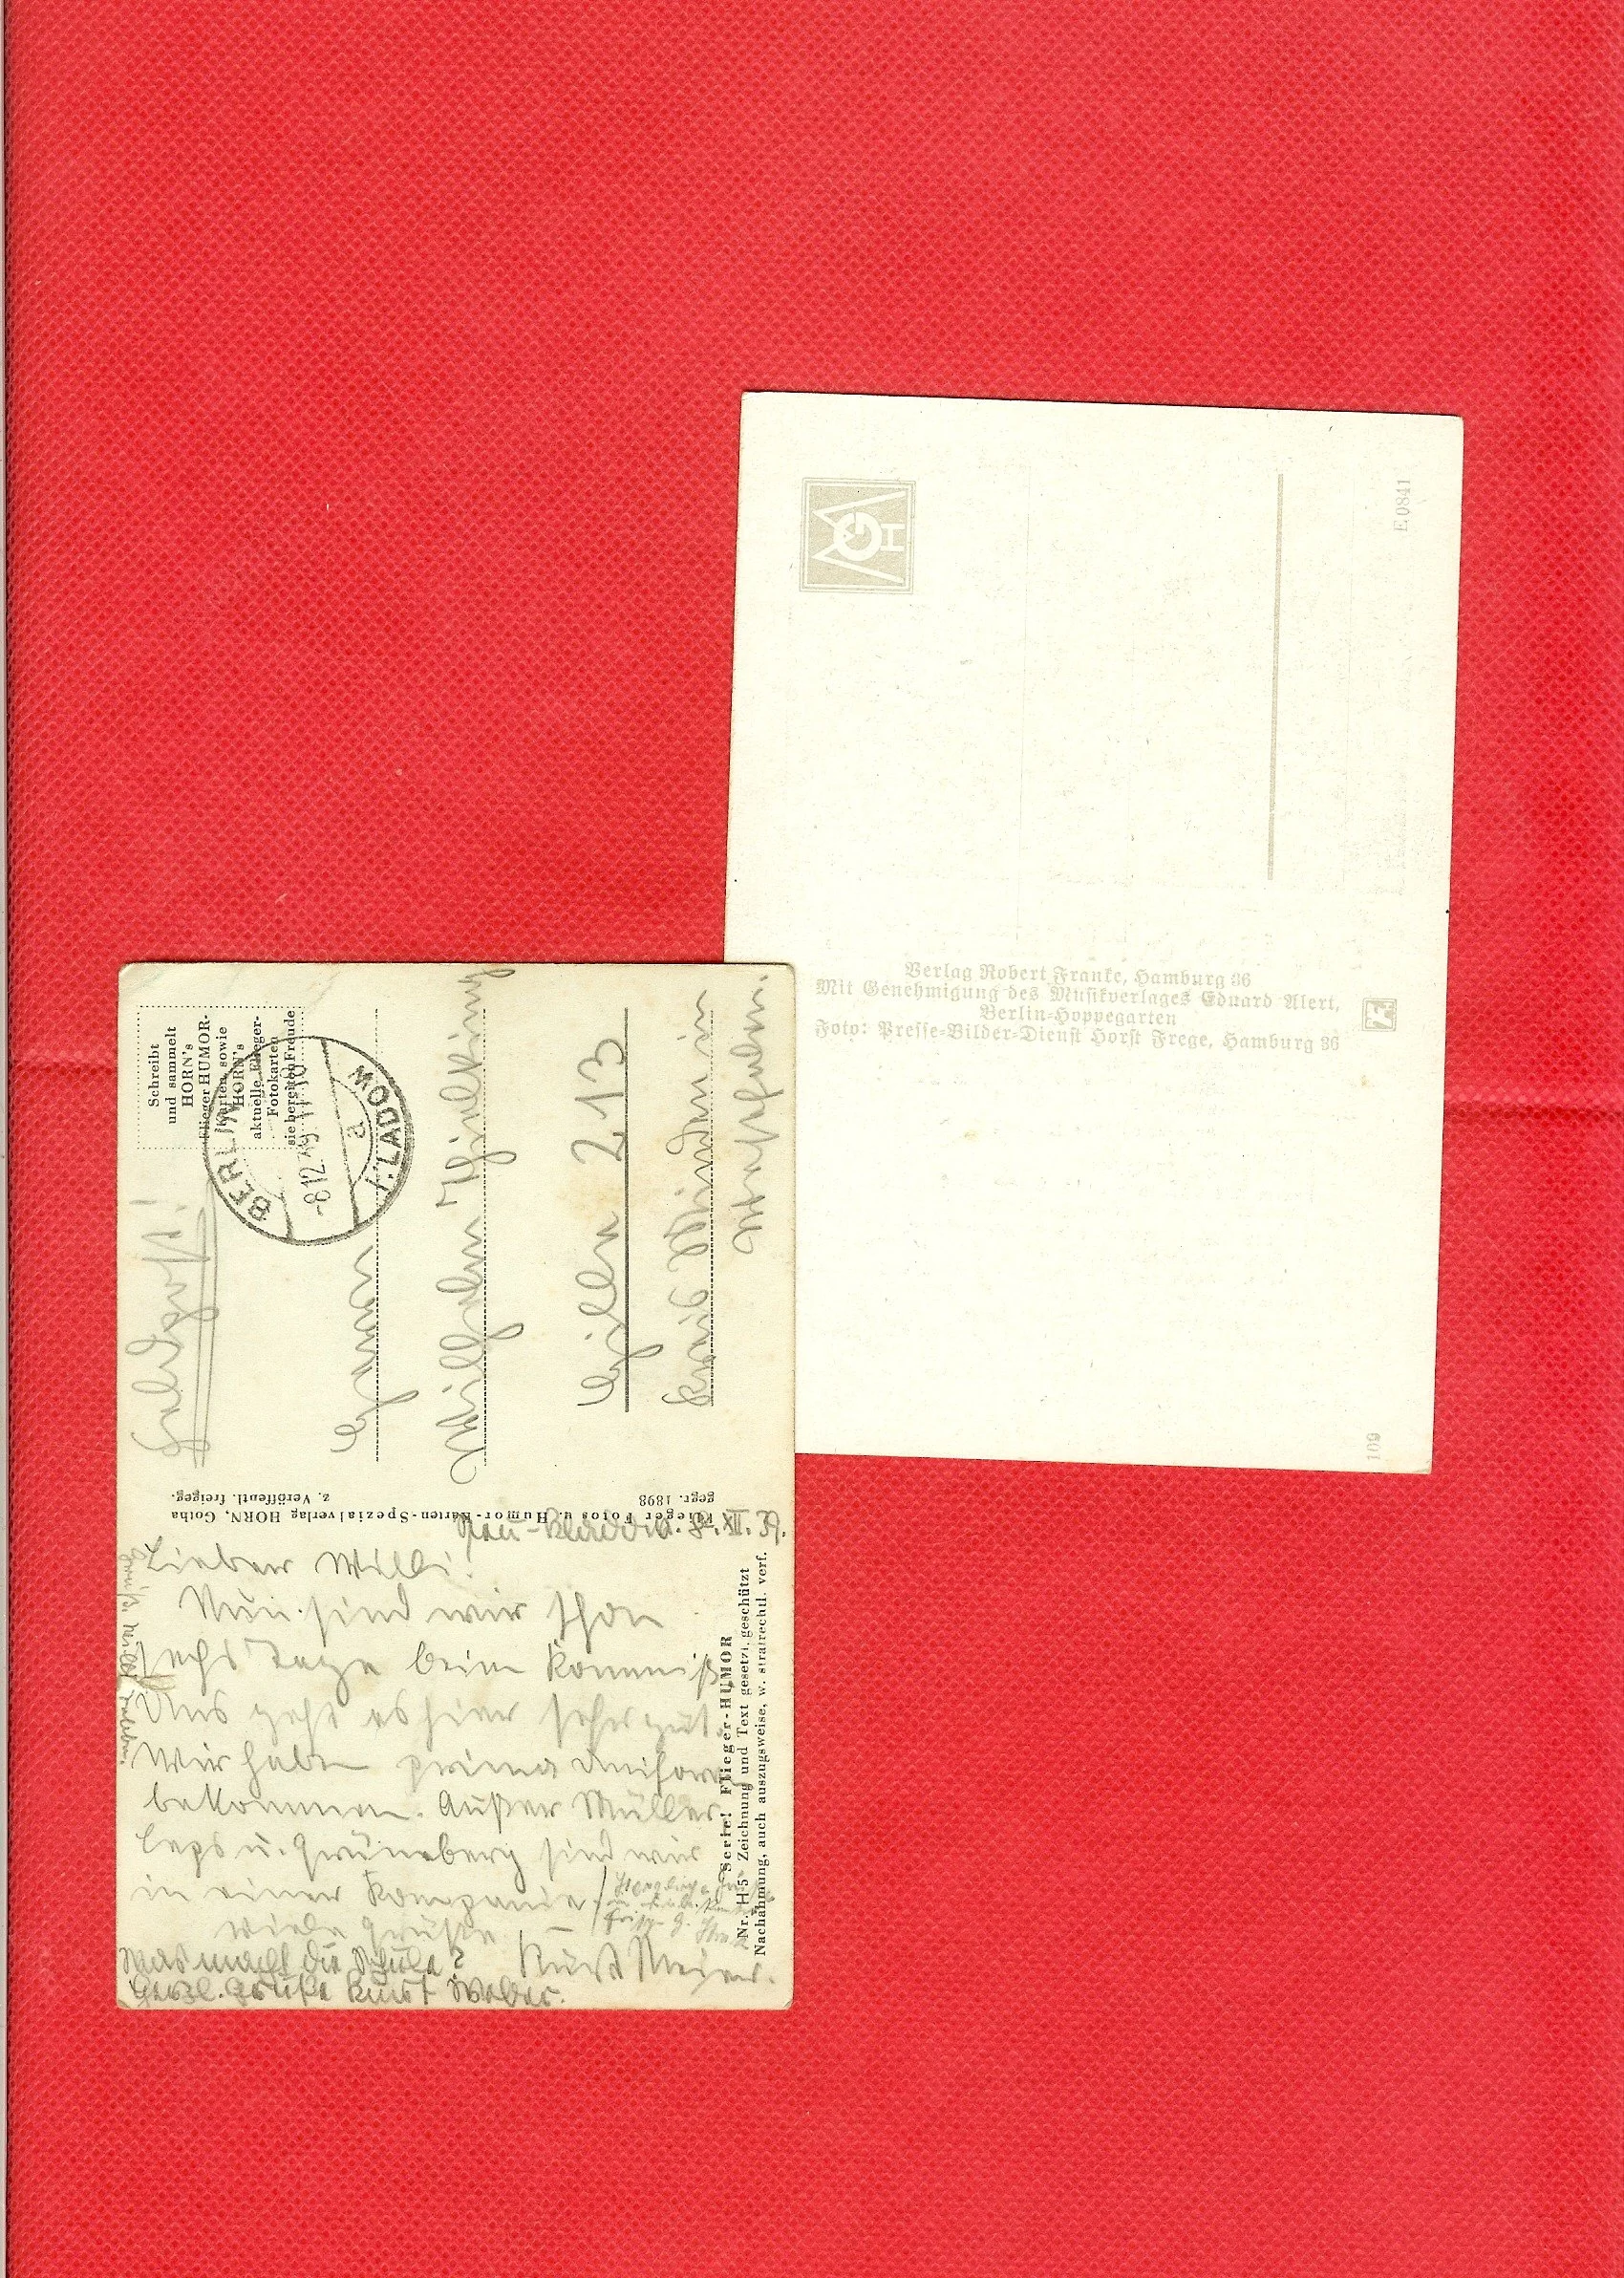 Schreibt
und sammelt
HORN's
Flieger HUMOR-
Karten sowie
HORN's
aktuelle Flieger-
Fotokarten
sie bereiten Freude
BERLIN-
-8.12.39 17-18
a
KLADOW
Feldpost!
Wilhelm
Eilen 213
Kreis Minden in
Westfalen.
Flieger Fotos u Humor-Karten-Spezialverlag HORN, Gotha
gegr. 1898
z. Veröffentl. freigeg.
Neu-Kladow. 8. XII. 39.
Lieber Willi!
Nun sind wir schon
sechs Tage beim Kommiß.
Uns geht es hier sehr gut.
Wir haben prima Uniform
bekommen. Außer Müller
Leps u. Grüneberg sind wir
in einer Kompanie.
Viele Grüße
Kurt Meyer.
Was macht die Schule?
Herzl. Grüße Kurt Weber.
Serie: Flieger-HUMOR
Nr. H 5 Zeichnung und Text gesetzl. geschützt
Nachahmung, auch auszugsweise, w. strafrechtl. verf.
E 0841
Verlag Robert Franke, Hamburg 36
Mit Genehmigung des Musikverlages Eduard Alert,
Berlin-Hoppegarten
Foto: Presse-Bilder-Dienst Horst Frege, Hamburg 36
109